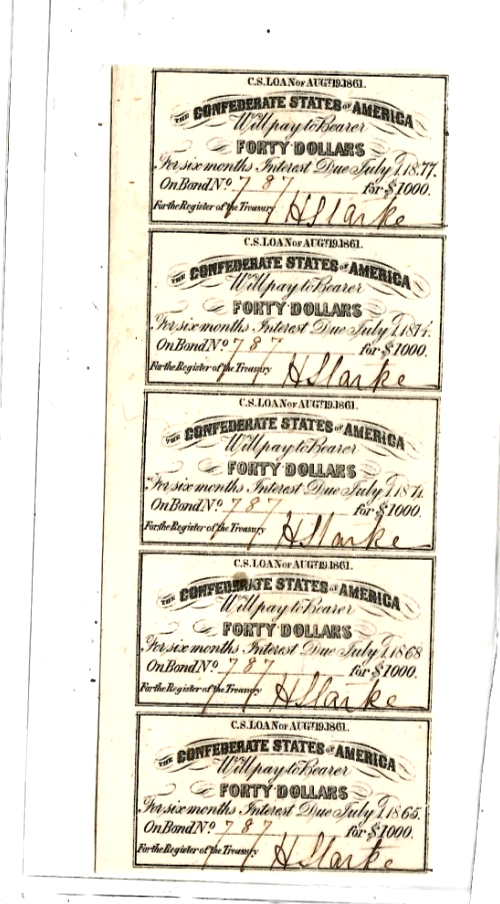 C.S. LOAN OF AUGT. 19.1861.
THE CONFEDERATE STATES OF AMERICA
Will pay to Bearer
FORTY DOLLARS
For six months Interest Due July 1, 1877.
On Bond No. 787 for $1000.
For the Register of the Treasury H Starke
C.S. LOAN OF AUGT. 19.1861.
THE CONFEDERATE STATES OF AMERICA
Will pay to Bearer
FORTY DOLLARS
For six months Interest Due July 1, 1874.
On Bond No. 787 for $1000.
For the Register of the Treasury H Starke
C.S. LOAN OF AUGT. 19.1861.
THE CONFEDERATE STATES OF AMERICA
Will pay to Bearer
FORTY DOLLARS
For six months Interest Due July 1, 1871.
On Bond No. 787 for $1000.
For the Register of the Treasury H Starke
C.S. LOAN OF AUGT. 19.1861.
THE CONFEDERATE STATES OF AMERICA
Will pay to Bearer
FORTY DOLLARS
For six months Interest Due July 1, 1868
On Bond No. 787 for $1000.
For the Register of the Treasury H Starke
C.S. LOAN OF AUGT. 19.1861.
THE CONFEDERATE STATES OF AMERICA
Will pay to Bearer
FORTY DOLLARS
For six months Interest Due July 1, 1865.
On Bond No. 787 for $1000.
For the Register of the Treasury H Starke